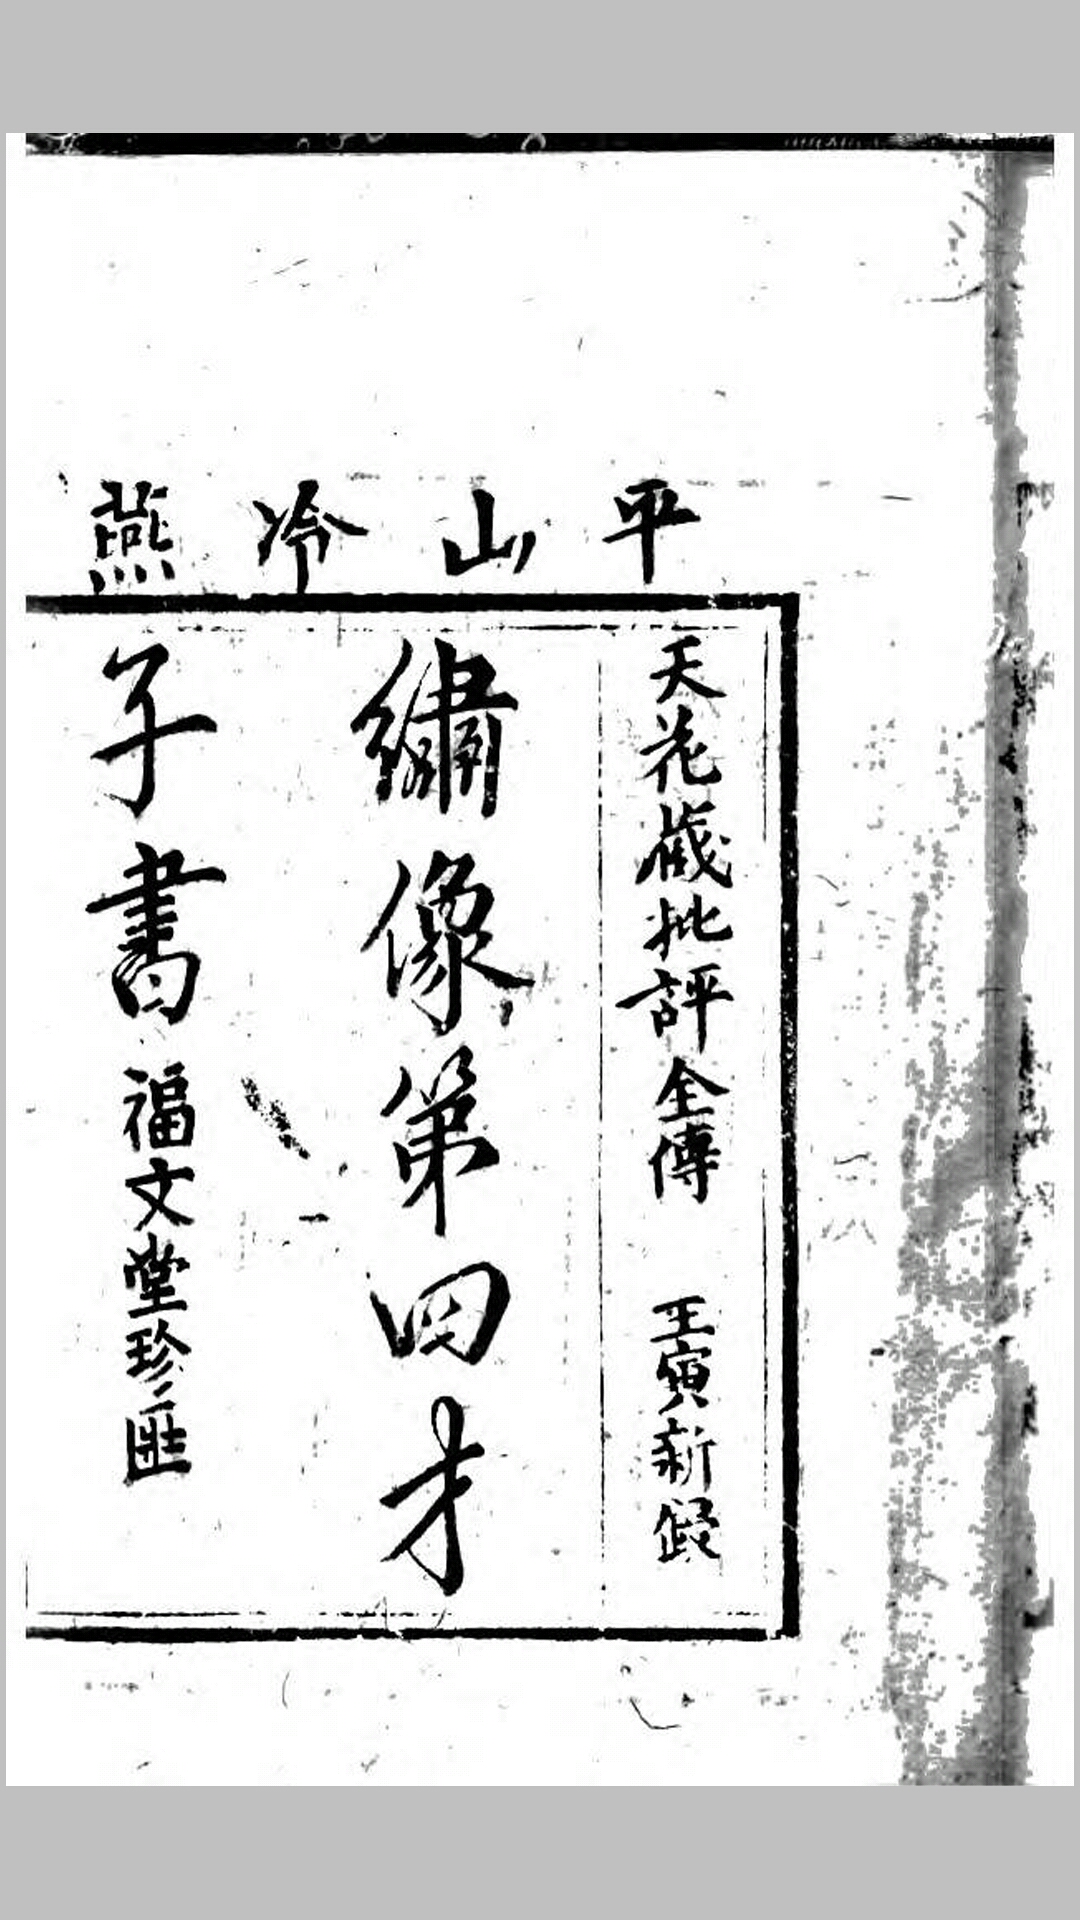 平山冷燕
天花藏批評全傳 壬寅新鋟
繡像第四才
子書 福文堂珍匯